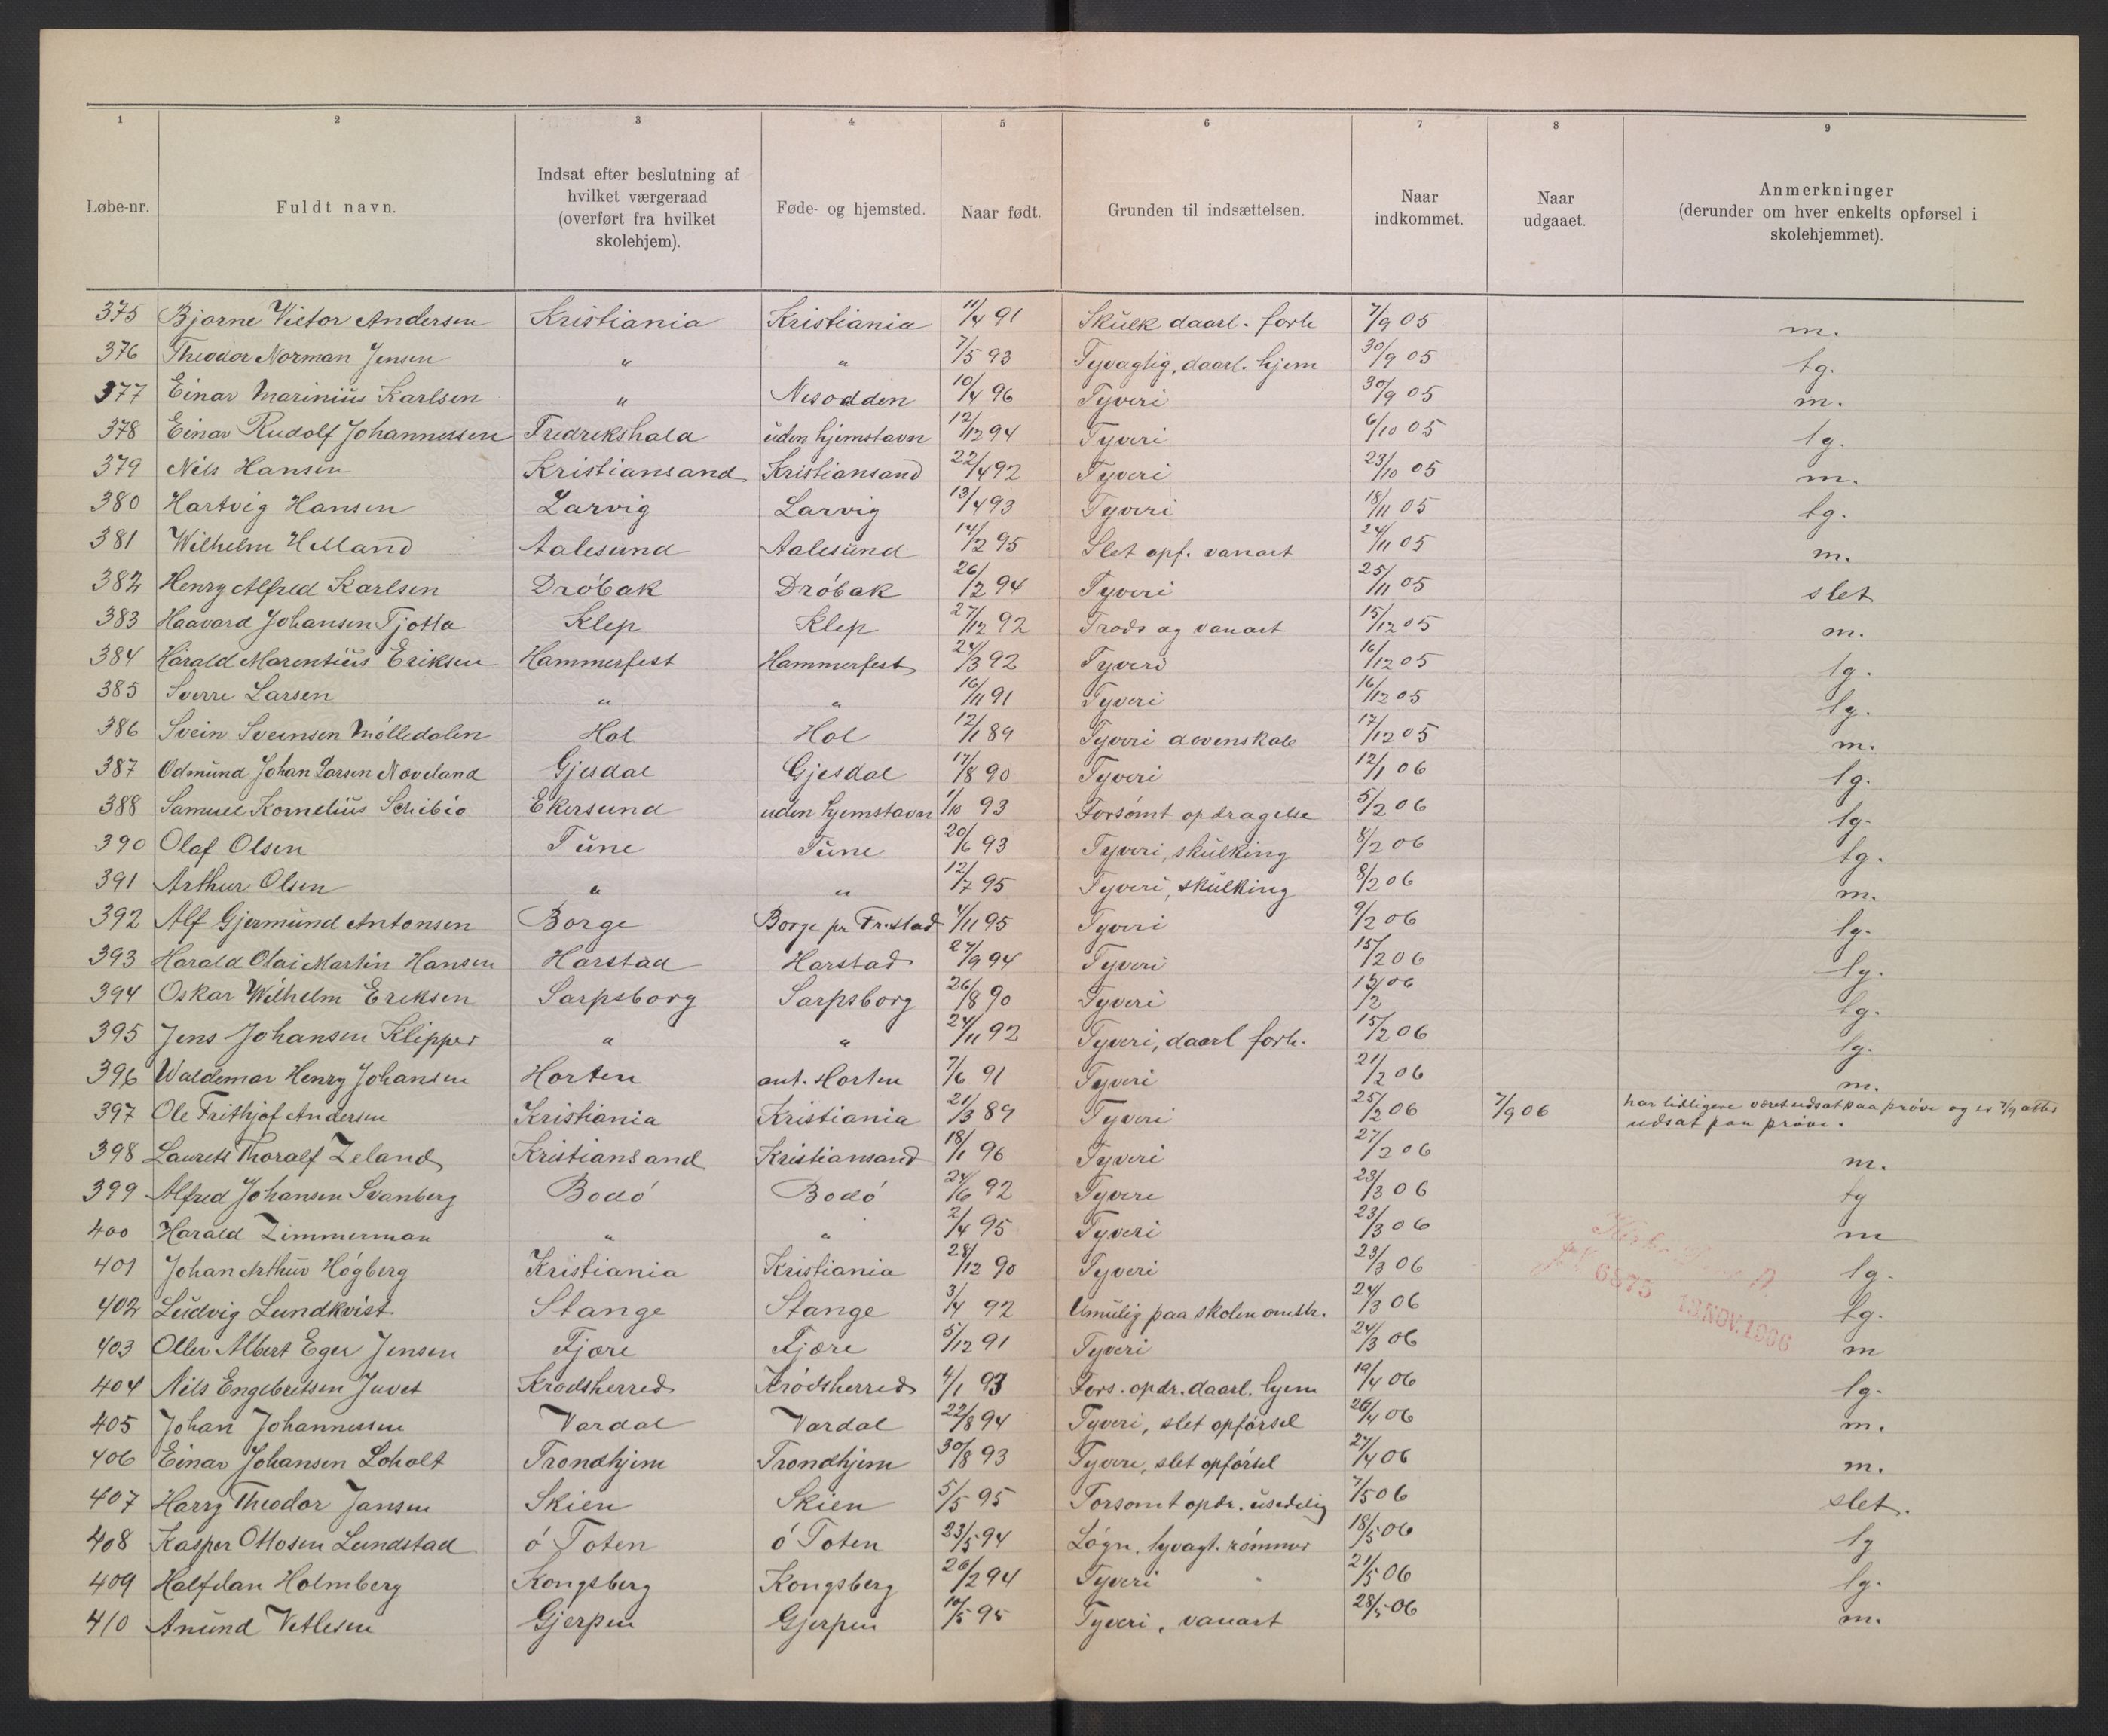 1 2 3 4 5 6 7 8 9
Løbe-nr. Fuldt navn. Indsat efter beslutning af hvilket værgeraad (overført fra hvilket skolehjem). Føde- og hjemsted. Naar født. Grunden til indsættelsen. Naar indkommet. Naar udgaaet. Anmerkninger (derunder om hver enkelts opførsel i skolehjemmet).
375 Bjarne Victor Andersen Kristiania Kristiania 11/4 91 Skulk daarl. forh 7/9 05 m.
376 Theodor Norman Jensen " " 7/5 93 Tyvagtig, daarl. hjem 30/9 05 tg.
377 Einar Marinius Karlsen " Nesodden 10/4 96 Tyveri 30/9 05 m.
378 Einar Rudolf Johannessen Fredrekshald uden hjemstavn 12/12 94 Tyveri 6/10 05 lg.
379 Nils Hansen Kristiansand Kristiansand 22/4 92 Tyveri 23/10 05 m.
380 Hartvig Hansen Larvig Larvig 13/4 93 Tyveri 18/11 05 tg.
381 Wilhelm Helland Aalesund Aalesund 14/2 95 Slet opf. vanart 24/11 05 m.
382 Henry Alfred Karlsen Drøbak Drøbak 26/2 94 Tyveri 25/11 05 slet
383 Haavard Johansen Tjøtta Klep Klep 27/12 92 Trods og vanart 15/12 05 m.
384 Harald Marentius Eriksen Hammerfest Hammerfest 24/3 92 Tyveri 16/12 05 lg.
385 Sverre Larsen " " 16/11 91 Tyveri 16/12 05 lg.
386 Svein Sveinsen Mølledalen Hol Hol 12/1 89 Tyveri dovenskab 17/12 05 m.
387 Odmund Johan Larsen Noveland Gjesdal Gjesdal 17/8 90 Tyveri 12/1 06 lg.
388 Samuel Kornelius Ekersund uden hjemstavn 1/10 93 Forsømt opdragelse 5/2 06 lg.
390 Olaf Olsen Tune Tune 20/6 93 Tyveri, skulking 8/2 06 tg.
391 Arthur Olsen " " 12/7 95 Tyveri, skulking 8/2 06 m.
392 Alf Gjermund Antonsen Borge Borge pr Fr.stad 4/11 95 Tyveri 9/2 06 lg.
393 Harald Olai Martin Hansen Harstad Harstad 27/9 94 Tyveri 15/2 06 lg.
394 Oskar Wilhelm Eriksen Sarpsborg Sarpsborg 26/8 90 Tyveri 15/2 06 tg.
395 Jens Johansen Klipper " " 24/11 92 Tyveri, daarl forh. 15/2 06 lg.
396 Waldemar Henry Johansen Horten ant. Horten 7/6 91 Tyveri 21/2 06 m.
397 Ole Frithjof Andersen Kristiania Kristiania 21/3 89 Tyveri 25/2 06 7/9 06 har tidligere været udsat paa prøve og er 7/9 atter
udsat paa prøve.
398 Laurits Thoralf Zeland Kristiansand Kristiansand 18/1 96 Tyveri 27/2 06 m.
399 Alfred Johansen Svanberg Bodø Bodø 24/6 92 Tyveri 23/3 06 tg
400 Harald Zimmerman " " 2/4 95 Tyveri 23/3 06 m
401 Johan Arthur Høgberg Kristiania Kristiania 28/12 90 Tyveri 23/3 06 lg.
402 Ludvig Lundkvist Stange Stange 3/4 92 Umulig paa skolen omstr. 24/3 06 tg.
403 Oller Albert Eger Jensen Fjære Fjære 5/12 91 Tyveri 24/3 06 m
6875 13 NOV. 1906
404 Nils Engebretsen Juvet Krødsherred Krødsherred 4/1 93 Fors. opdr. daarl. hjem 19/4 06 lg.
405 Johan Johannessen Vardal Vardal 22/8 94 Tyveri, slet opførsel 26/4 06 m.
406 Einar Johansen Loholt Trondhjem Trondhjem 30/8 93 Tyveri, slet opførsel 27/4 06 m.
407 Harry Theodor Jansen Skien Skien 5/5 95 Forsømt opdr. usedelig 7/5 06 slet.
408 Kasper Ottosen Lundstad ø Toten ø Toten 23/5 94 Løgn, tyvagt. rømmer 18/5 06 lg
409 Halfdan Holmberg Kongsberg Kongsberg 26/2 94 Tyveri 21/5 06 lg.
410 Anund Vetlesen Gjerpen Gjerpen 10/5 95 Tyveri, vanart 28/5 06 m.